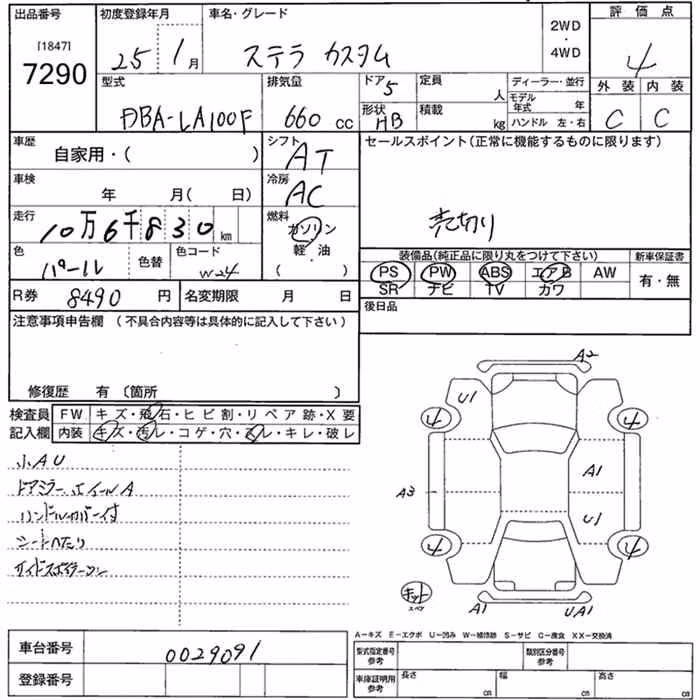 出品番号 初度登録年月 車名・グレード 2WD・4WD 評価点
[1847]
7290 25年 1月 ステラ カスタム 4
型式 排気量 ドア 定員 ディーラー・並行 外装 内装
DBA-LA100F 660 cc 5 人 モデル年式 年 C C
形状 積載 ハンドル 左・右
HB kg
車歴 自家用・( ) シフト AT セールスポイント(正常に機能するものに限ります)
車検 年 月( 日) 冷房 AC
走行 10万6千830 km 燃料 ガソリン 軽・油 ( ) 売切り
色 パール 色替 色コード W24
装備品(純正品に限り丸をつけて下さい) 新車保証書
PS PW ABS エアB AW 有・無
SR ナビ TV カワ
R券 8490 円 名変期限 月 日 後日品
注意事項申告欄 (不具合内容等は具体的に記入して下さい)
修復歴 有 〔箇所 〕
検査員 FW キズ・飛石・ヒビ割・リペア跡・X要
記入欄 内装 キズ・汚レ・コゲ・穴・スレ・キレ・破レ
小AU
ドアミラー ホイールA
ハンドルカバー付
シートヘたり
A2
U1
4 4
A1
A3
U1
4 4
キット
スペア
A1 UA1
A-キズ E-エクボ U-凹み W-補修跡 S-サビ C-腐食 XX-交換済
車台番号 0029091
登録番号
型式指定番号 参考 類別区分番号 参考
車庫証明用 参考 長さ cm 幅 cm 高さ cm